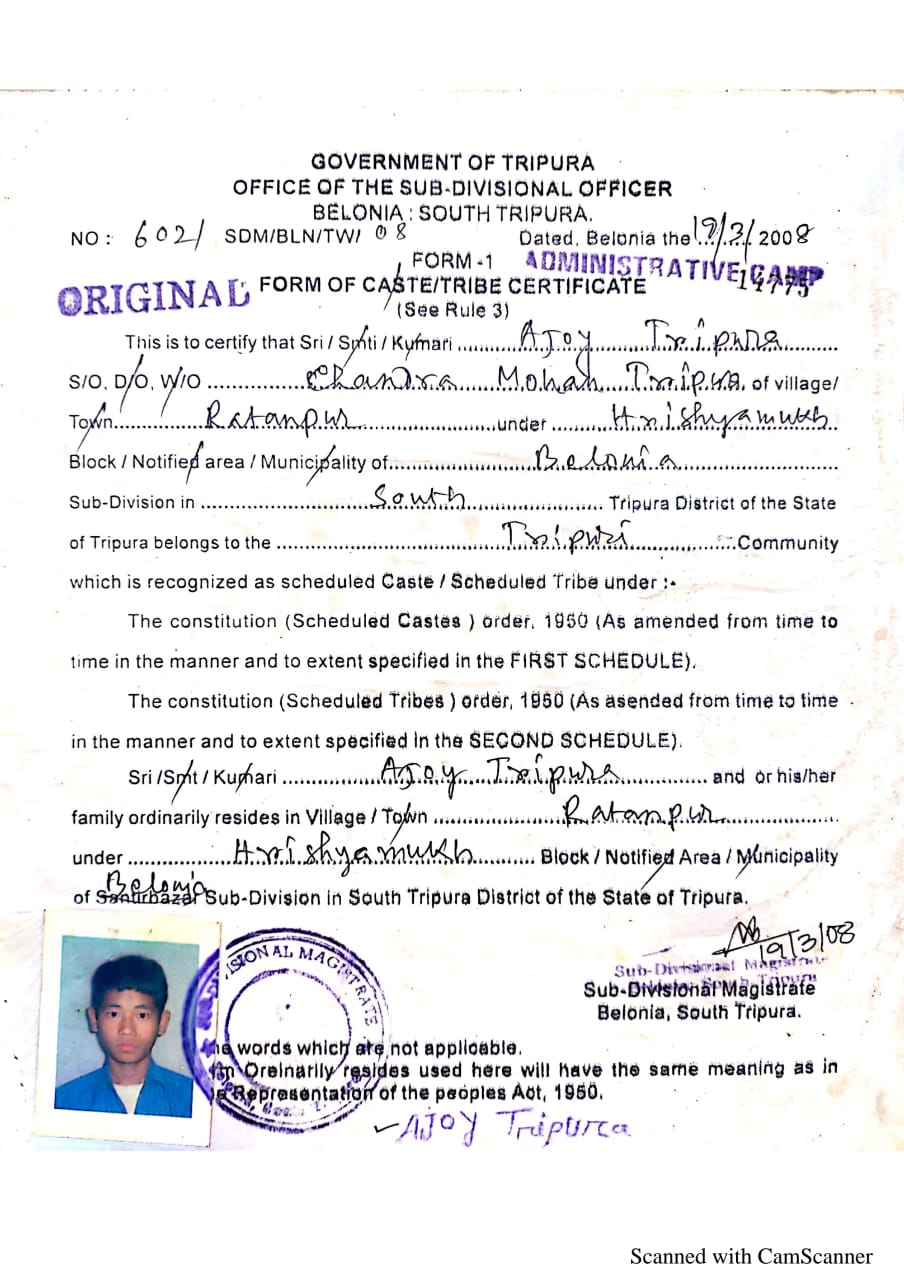 GOVERNMENT OF TRIPURA
OFFICE OF THE SUB-DIVISIONAL OFFICER
BELONIA : SOUTH TRIPURA.
NO : 602/ SDM/BLN/TW/ 08 Dated, Belonia the 19/3/ 2008
FORM -1 ADMINISTRATIVE CAMP
ORIGINAL FORM OF CASTE/TRIBE CERTIFICATE
(See Rule 3)
This is to certify that Sri / Smti / Kumari .......... AJOY Tripura ..........
S/O, D/O, W/O .......... Chandra Mohan Tripura, of village/
Town .......... Ratanpur .......... under .......... Hrishyamukh
Block / Notified area / Municipality of .......... Belonia ..........
Sub-Division in .......... South .......... Tripura District of the State
of Tripura belongs to the .......... Tripuri .......... Community
which is recognized as scheduled Caste / Scheduled Tribe under :-
The constitution (Scheduled Castes ) order, 1950 (As amended from time to
time in the manner and to extent specified in the FIRST SCHEDULE).
The constitution (Scheduled Tribes ) order, 1950 (As asended from time to time
in the manner and to extent specified in the SECOND SCHEDULE).
Sri /Smt / Kumari .......... AJOY Tripura .......... and or his/her
family ordinarily resides in Village / Town .......... Ratanpur ..........
under .......... Hrishyamukh .......... Block / Notified Area / Municipality
Belonia
of Santirbazar Sub-Division in South Tripura District of the State of Tripura.
19/3/08
Sub-Divisional Magistrate
Sub-Divisional Magistrate
Belonia, South Tripura.
DIVISIONAL MAGISTRATE
he words which are not applicable.
Oreinarily resides used here will have the same meaning as in
Representation of the peoples Act, 1950.
AJOY Tripura
Scanned with CamScanner